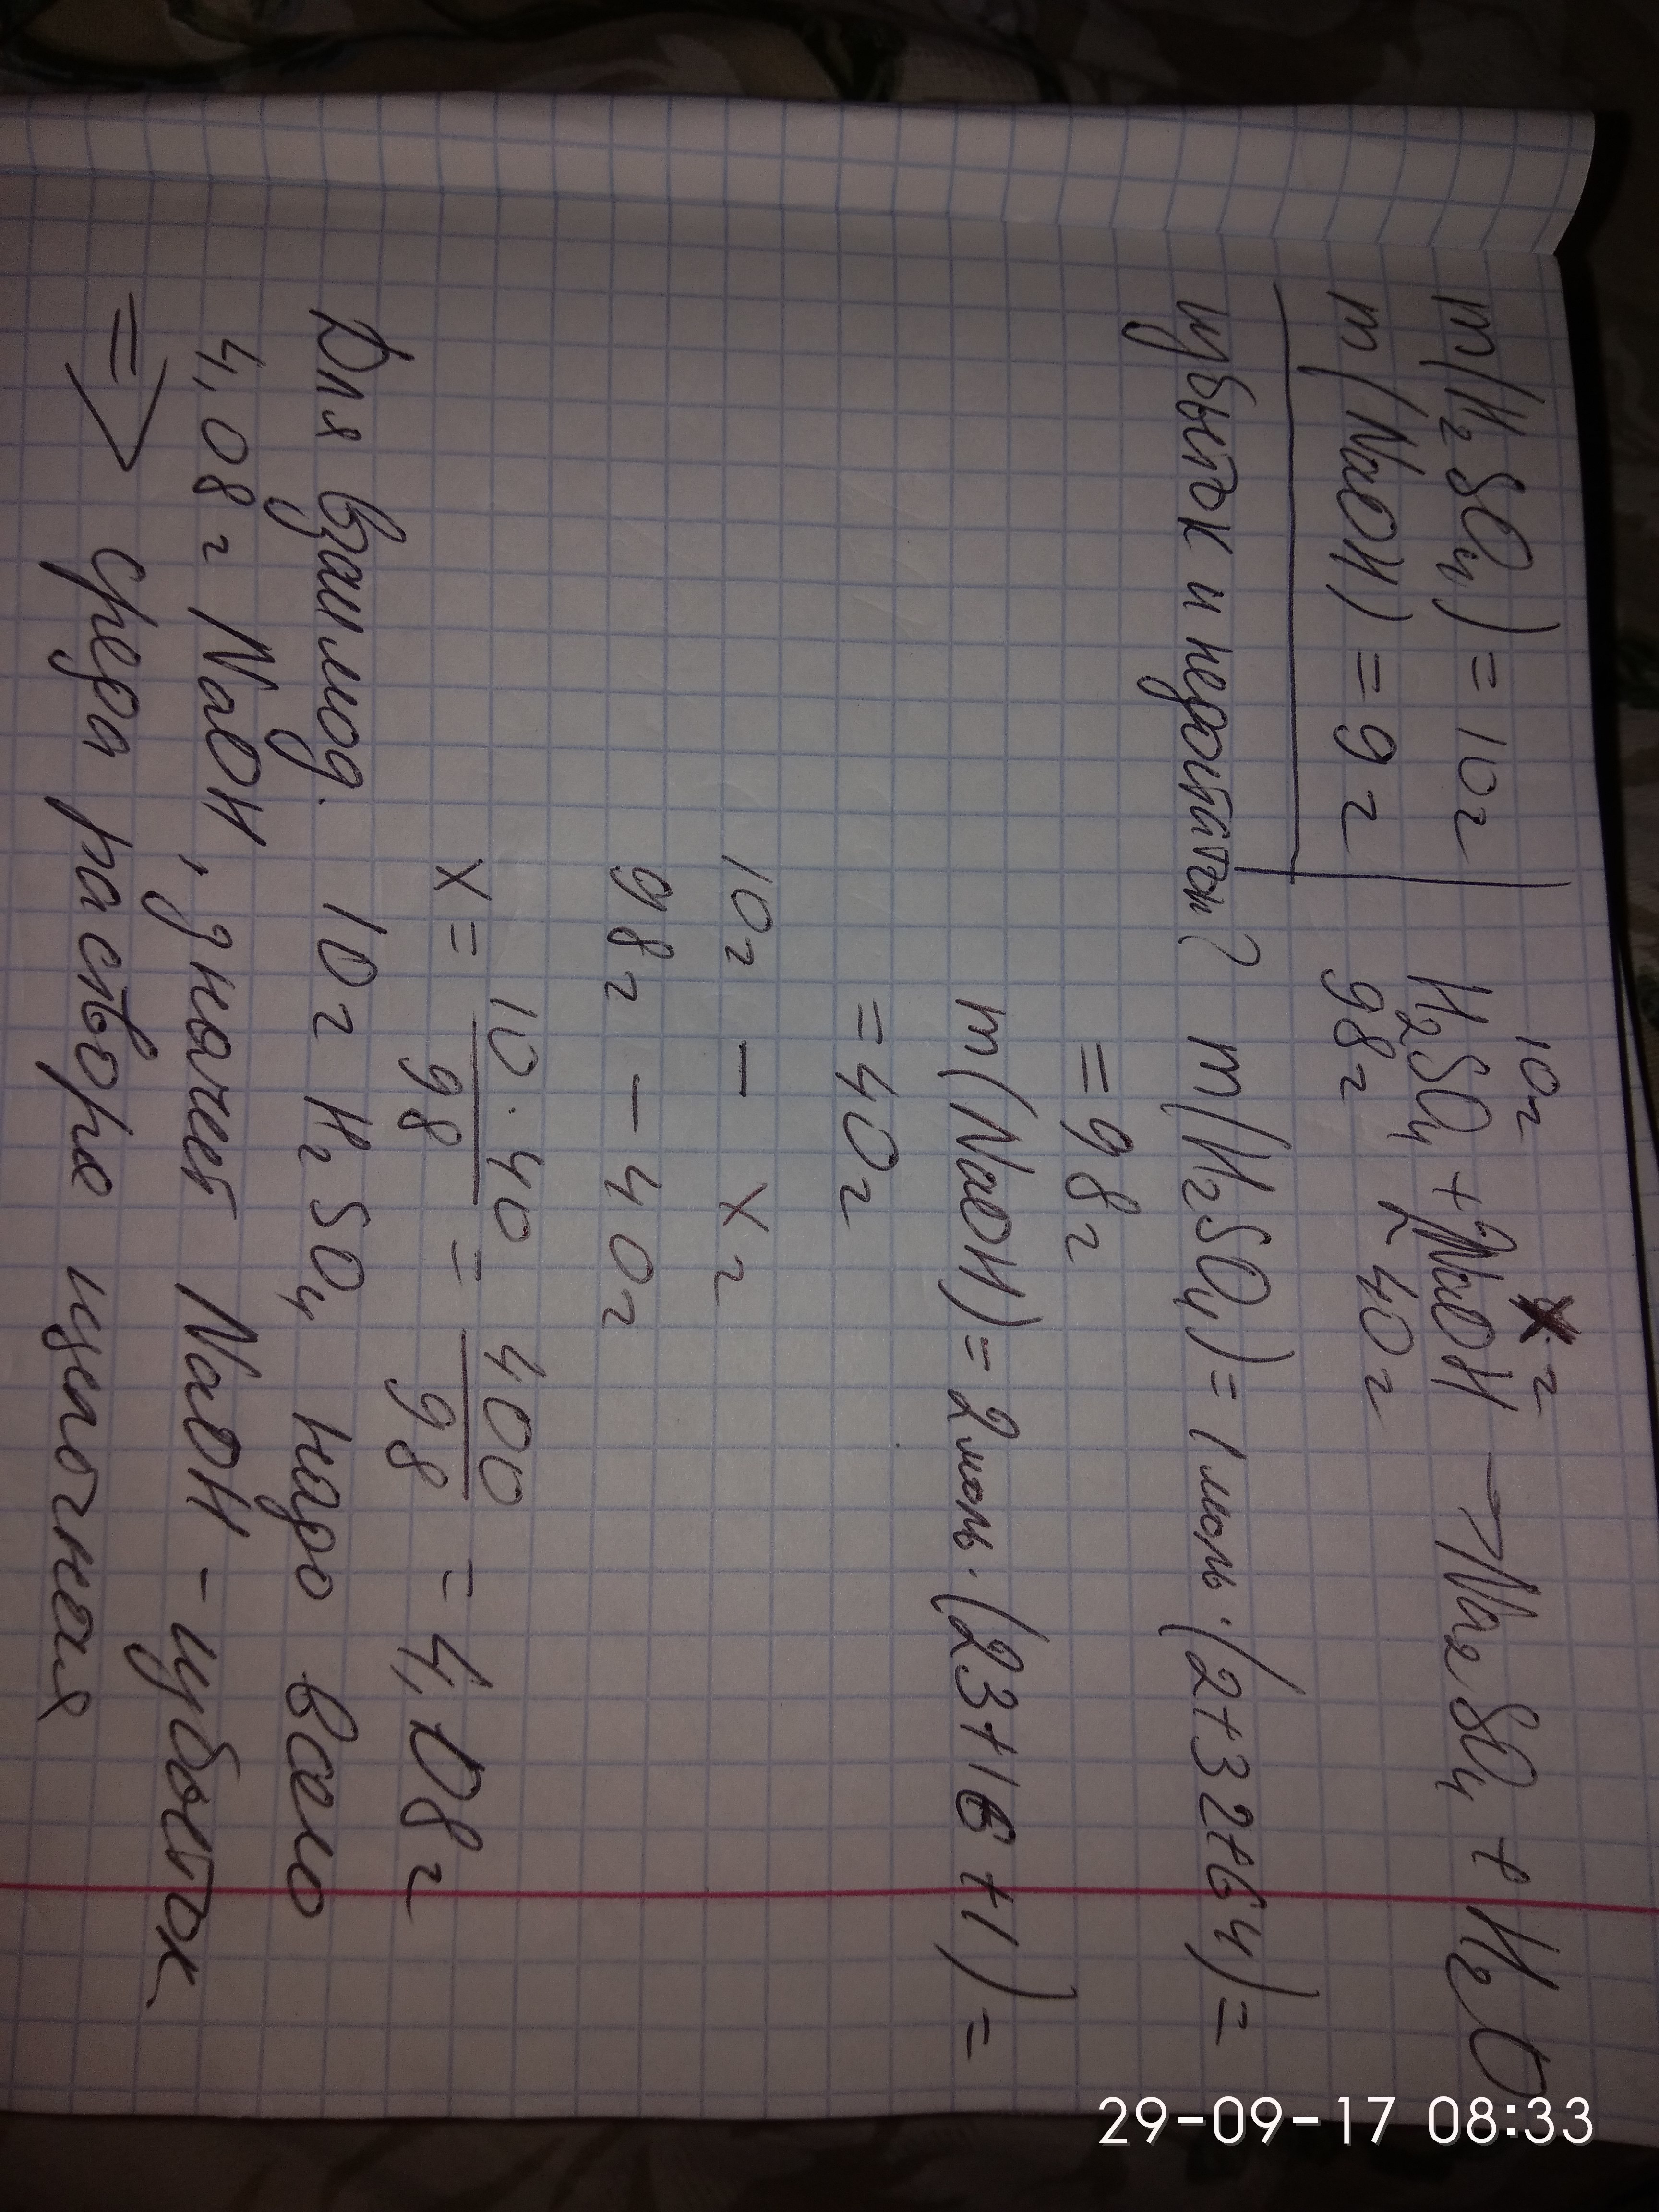 m(H₂SO₄) = 10г
m(NaOH) = 9г
избыток и недостаток?
10г х г
H₂SO₄ + 2NaOH → Na₂SO₄ + H₂O
98г 40г
m(H₂SO₄) = 1моль·(2+32+64) =
= 98г
m(NaOH) = 2моль·(23+16+1) =
= 40г
10г – х г
98г – 40г
х = 10·40/98 = 400/98 = 4,08г
Для взаимод. 10г H₂SO₄ надо всего
4,08г NaOH, значит NaOH – избыток
=> среда растворе щелочная
29-09-17 08:33